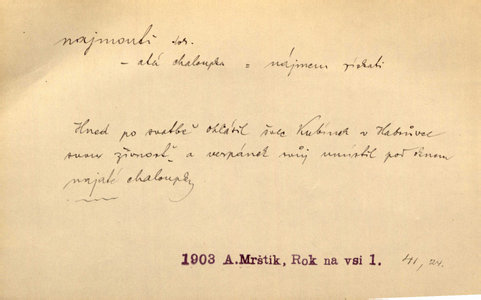 najmouti
– atá chaloupka = nájmem získati
Hned po svatbě ohlásil švec Kubínek v Habrůvce
svou živnost a verpánek svůj umístil pod oknem
najaté chaloupky
1903 A.Mrštík, Rok na vsi 1. 41, 24.